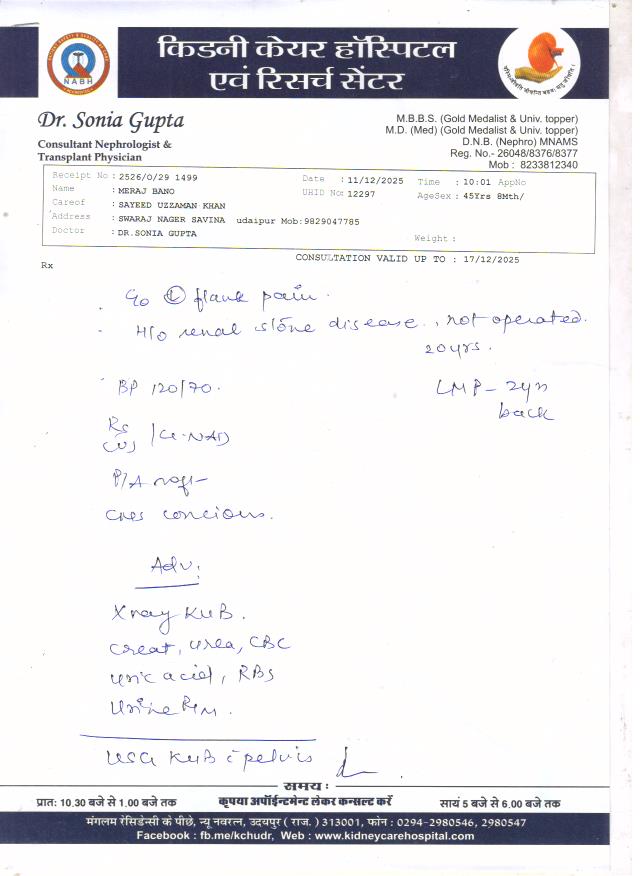 किडनी केयर हॉस्पिटल
एवं रिसर्च सेंटर
NABH
Dr. Sonia Gupta
Consultant Nephrologist &
Transplant Physician
M.B.B.S. (Gold Medalist & Univ. topper)
M.D. (Med) (Gold Medalist & Univ. topper)
D.N.B. (Nephro) MNAMS
Reg. No.- 26048/8376/8377
Mob : 8233812340
Receipt No : 2526/O/29 1499 Date : 11/12/2025 Time : 10:01 AppNo
Name : MERAJ BANO UHID No: 12297 AgeSex : 45Yrs 8Mth/
Careof : SAYEED UZZAMAN KHAN
Address : SWARAJ NAGER SAVINA udaipur Mob:9829047785
Doctor : DR.SONIA GUPTA Weight :
CONSULTATION VALID UP TO : 17/12/2025
Rx
C/o Ⓛ flank pain.
H/o renal stone disease, not operated.
20yrs.
BP 120/70. LMP - 2yrs
back
RS
CVS
P/A
CNS concious.
Adv:
Xray KUB.
Creat, Urea, CBC
uric acid, RBS
Urine R/M.
USG KUB c pelvis
समय :
प्रात: 10.30 बजे से 1.00 बजे तक कृपया अपॉईन्टमेन्ट लेकर कन्सल्ट करें सायं 5 बजे से 6.00 बजे तक
मंगलम रेसिडेन्सी के पीछे, न्यू नवरत्न, उदयपुर ( राज. ) 313001, फोन : 0294-2980546, 2980547
Facebook : fb.me/kchudr, Web : www.kidneycarehospital.com